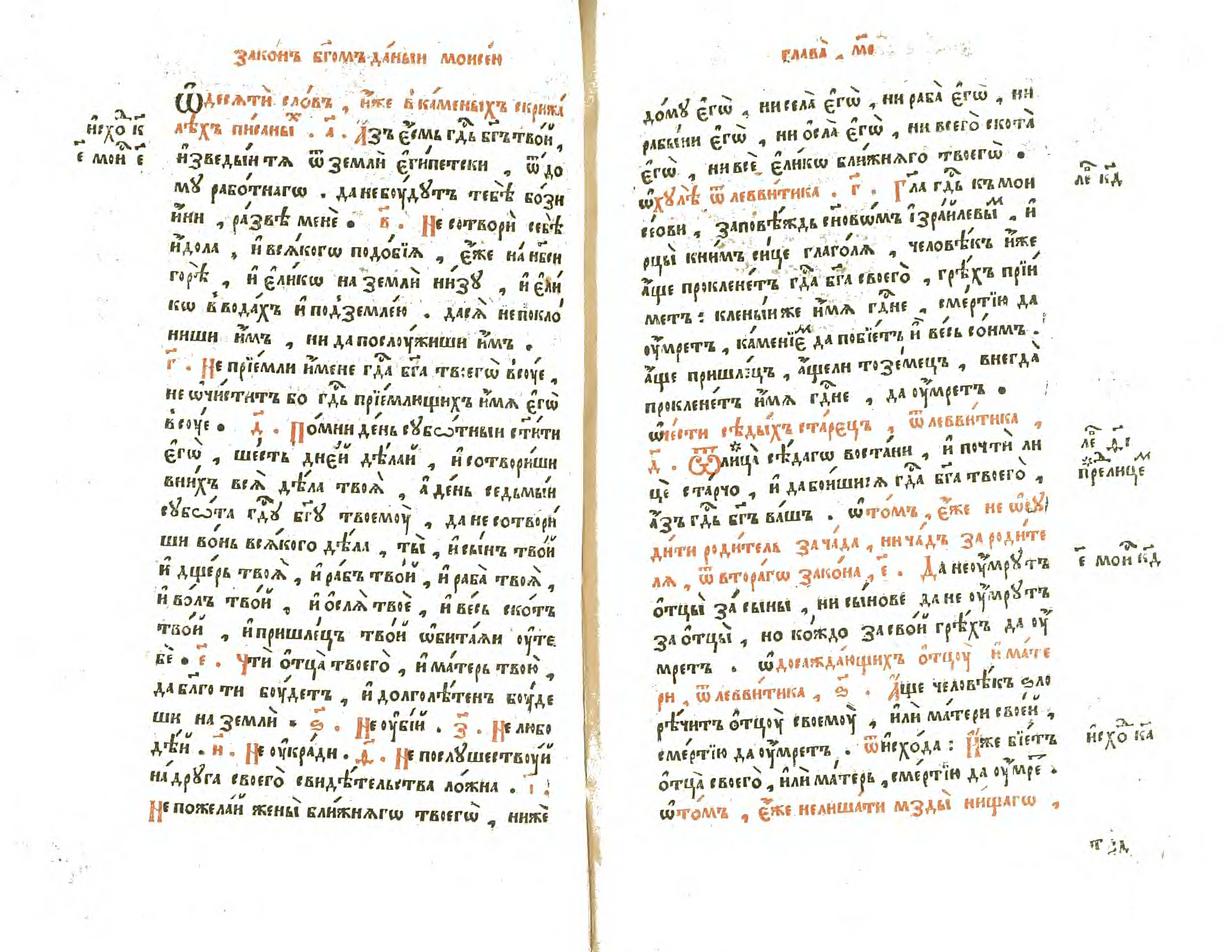 Зако́нъ бг҃омъ да́ныи моисе́ю
Ѡ҆ десѧтѝ сло́въ , и҆́же в ка́меныхъ скрижа́
лѣхъ пи́саныⷯ . а҃ . А҆́зъ є҆́смь гдⷭ҇ь бг҃ъ тво́й ,
и҆схоⷣ к҃
є҃ моиⷭ҇ є҃
и҆зведы́и тѧ ѿ землѝ є҆ги́петски , ѿ до
мꙋ рабо́тнагѡ . да не бꙋ́дꙋтъ тебѣ̀ бо́зи
и҆́ни , ра́звѣ менѐ . в҃ . Не сотворѝ себѣ̀
и҆́дола , и҆ всѧ́когѡ подо́бїѧ , є҆́же на нб҃си
горѣ̀ , и҆ є҆ли́кѡ на землѝ ни́зꙋ , и҆ є҆ли́
кѡ в вода́хъ и҆ под землею . да сѧ̀ не покло́
ниши и҆̀мъ , ни да послꙋ́жиши и҆̀мъ .
г҃ . Не прїе́мли и҆́мене гдⷭ҇а бг҃а твоегѡ̀ всꙋе ,
не ѡ҆чи́ститъ бо гдⷭ҇ь прїе́млющихъ и҆́мѧ є҆гѡ̀
всꙋе . д҃ . По́мни де́нь сꙋбѡ́тныи ст҃и́ти
є҆гѡ̀ , ше́сть дне́й дѣ́лай , и҆ сотвори́ши
в ни́хъ всѧ̀ дѣ́ла твоѧ̀ , а҆ де́нь седмы́и
сꙋбѡ́та гдⷭ҇ꙋ бг҃ꙋ твоемꙋ̀ , да не сотвори́
ши во́нь всѧ́кого дѣ́ла , ты̀ , и҆ сы́нъ тво́й
и҆ дще́рь твоѧ̀ , и҆ ра́бъ тво́й , и҆ раба̀ твоѧ̀ ,
и҆ во́лъ тво́й , и҆ ѻ҆слѧ̀ твоѐ , и҆ ве́сь ско́тъ
тво́й , и҆ пришле́цъ тво́й ѡ҆бита́ѧи ᲂу҆ те
бѐ . є҃ . Чтѝ ѻ҆тца̀ твоего̀ , и҆ ма́терь твою̀ ,
да бл҃го ти бꙋ́детъ , и҆ долголѣ́тенъ бꙋ́де
ши на землѝ . ѕ҃ . Не ᲂу҆бі́й . з҃ . Не любо
дѣ́й . и҃ . Не ᲂу҆кра́ди . ѳ҃ . Не послꙋшествꙋ́й
на дрꙋ́га своего̀ свидѣ́тельства ло́жна . і҃ .
Не пожела́й жены̀ бли́жнѧгѡ твоегѡ̀ , ни же
глава̀ , м҃є
до́мꙋ є҆гѡ̀ , ни села̀ є҆гѡ̀ , ни раба̀ є҆гѡ̀ , ни
рабы́ни є҆гѡ̀ , ни ѻ҆сла̀ є҆гѡ̀ , ни всего̀ скота̀
є҆гѡ̀ , ни всѐ є҆ли́кѡ бли́жнѧго твоегѡ̀ .
ѡ҆ хꙋлѣ̀ ѿ левви́тика . г҃ . Гл҃а гдⷭ҇ь к мои
леⷡ҇ к҃д
се́ови , запо́вѣждь сн҃овѡ́мъ і҆зра́илевыⷨ , и҆
рцы̀ кни́мъ си́це глаго́лѧ , человѣ́къ и҆́же
а҆́ще проклене́тъ гдⷭ҇а бг҃а своего̀ , грѣ́хъ прїи́
метъ : кленыи́ же и҆́мѧ гдⷭ҇не , сме́ртїю да
ᲂу҆́мретъ , ка́менїеⷨ да побїе́тъ и҆̀ ве́сь со́нмъ .
а҆́ще пришле́цъ , а҆́ще ли тозе́мецъ , внегда̀
проклене́тъ и҆́мѧ гдⷭ҇не , да ᲂу҆́мретъ .
ѡ҆ че́сти сѣды́хъ ста́рєцъ , ѿ левви́тика ,
д҃ . Ѿ лица̀ сѣда́гѡ воста́ни , и҆ почтѝ ли
леⷡ҇ ѳ҃і
прелицеⷨ
цѐ ста́рчо , и҆ да бои́шисѧ гдⷭ҇а бг҃а твоего̀ ,
а҆́зъ гдⷭ҇ь бг҃ъ ва́шъ . ѡ҆ то́мъ , є҆́же не ѡ҆сꙋ
ди́ти роди́тель за ча́да , ни ча́дъ за роди́те
лѧ , ѿ втора́гѡ зако́на , є҃ . Да не ᲂу҆́мрꙋтъ
є҃ моиⷭ҇ к҃д
ѻ҆тцы̀ за́ сыны , ни сы́нове да не ᲂу҆́мрꙋтъ
за ѻ҆тцы̀ , но ко́ждо за сво́й грѣ́хъ да ᲂу҆́
мретъ . ѡ҆ досажда́ющихъ ѻ҆тцꙋ̀ и҆ ма́те
ри , ѿ левви́тика , ѕ҃ . А҆́ще человѣ́къ ѕло
рѣ́читъ ѻ҆тцꙋ̀ своемꙋ̀ , и҆лѝ ма́тери свое́й ,
сме́ртїю да ᲂу҆́мретъ . ѿ и҆схо́да : И҆́же бїе́тъ
и҆схоⷣ к҃а
ѻ҆тца̀ своего̀ , и҆лѝ ма́терь , сме́ртїю да ᲂу҆́мреⷮ .
ѡ҆ то́мъ , є҆́же не лиша́ти мзды̀ ни́щагѡ ,